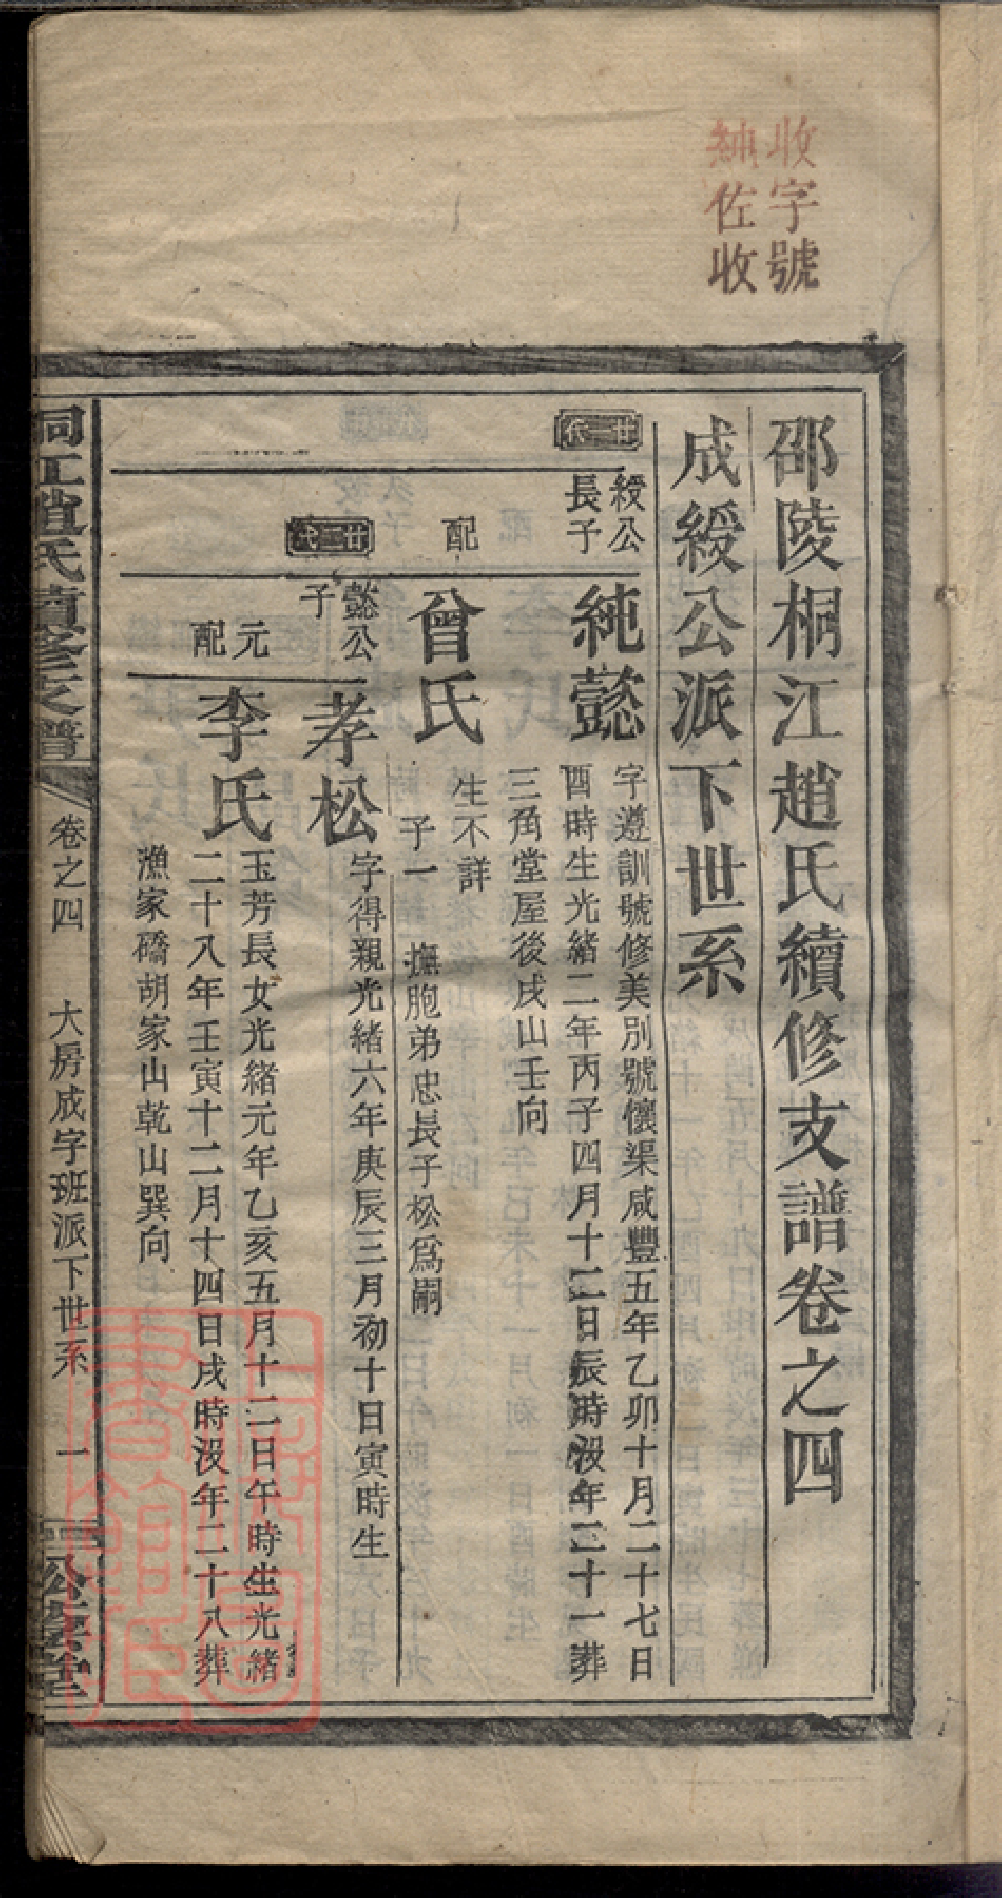 收字號
紳佐收
邵陵桐江趙氏續修支譜卷之四
成綬公派下世系
廿二代
綬公
長子
純懿
字遵訓號修美別號懷渠咸豐五年乙卯十月二十七日
酉時生光緒二年丙子四月十二日辰時沒年二十一葬
三角堂屋後戌山壬向
配
曾氏
生不詳
子一 撫胞弟忠長子松爲嗣
廿三代
懿公
子
孝松
字得親光緒六年庚辰三月初十日寅時生
元
配
李氏
玉芳長女光緒元年乙亥五月十二日午時生光緒
二十八年壬寅十二月十四日戌時沒年二十八葬
漁家礄胡家山乾山巽向
桐江趙氏續修支譜
卷之四 大房成字班派下世系 一